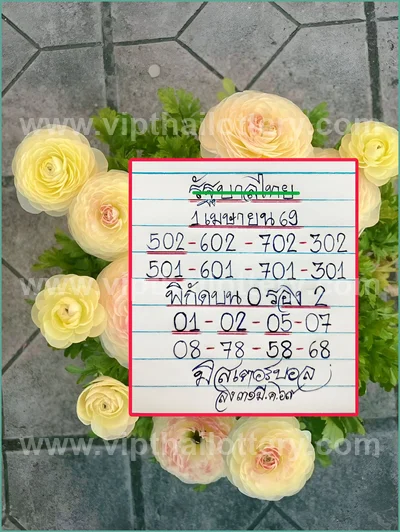 www.vipthailottery.com
รัฐบาลไทย
1 เมษายน 69
502-602-702-302
501-601-701-301
พิกัดบน 0 รอง 2
01-02-05-07
08-78-58-68
มิสเตอร์บอล
www.vipthailottery.com
www.vipthailottery.com